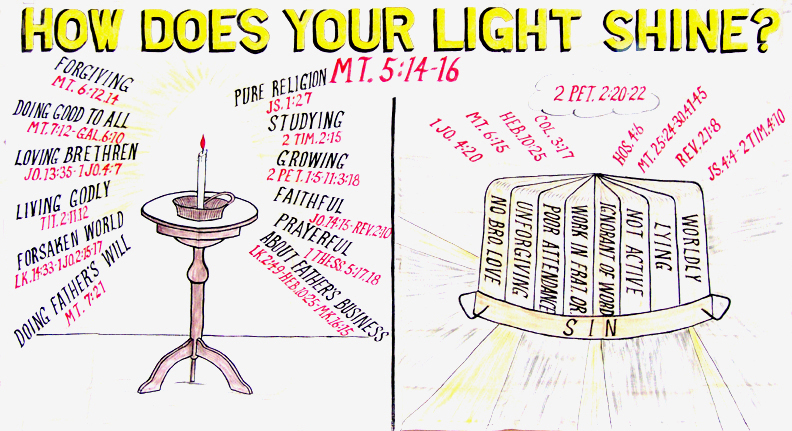 HOW DOES YOUR LIGHT SHINE?
MT. 5:14-16
FORGIVING
MT. 6:12,14
DOING GOOD TO ALL
MT. 7:12-GAL. 6:10
LOVING BRETHREN
JO. 13:35-1 JO. 4:7
LIVING GODLY
TIT. 2:11,12
FORSAKEN WORLD
LK. 14:33-1 JO. 2:15-17
DOING FATHER'S WILL
MT. 7:21
PURE RELIGION
JS. 1:27
STUDYING
2 TIM. 2:15
GROWING
2 PET. 1:5-11;3:18
FAITHFUL
JO. 14:15-REV. 2:10
PRAYERFUL
1 THESS. 5:17,18
ABOUT FATHER'S BUSINESS
LK. 2:49-HEB. 10:25-MK. 16:15
2 PET. 2:20-22
1 JO. 4:20
MT. 6:15
HEB. 10:25
COL. 3:17
HOS. 4:6
MT. 25:24-30,41-45
REV. 21:8
JS. 4:4-2 TIM. 4:10
NO BRO. LOVE
UNFORGIVING
POOR ATTENDANCE
WORK IN FRAT. OR
IGNORANT OF WORD
NOT ACTIVE
LYING
WORLDLY
SIN